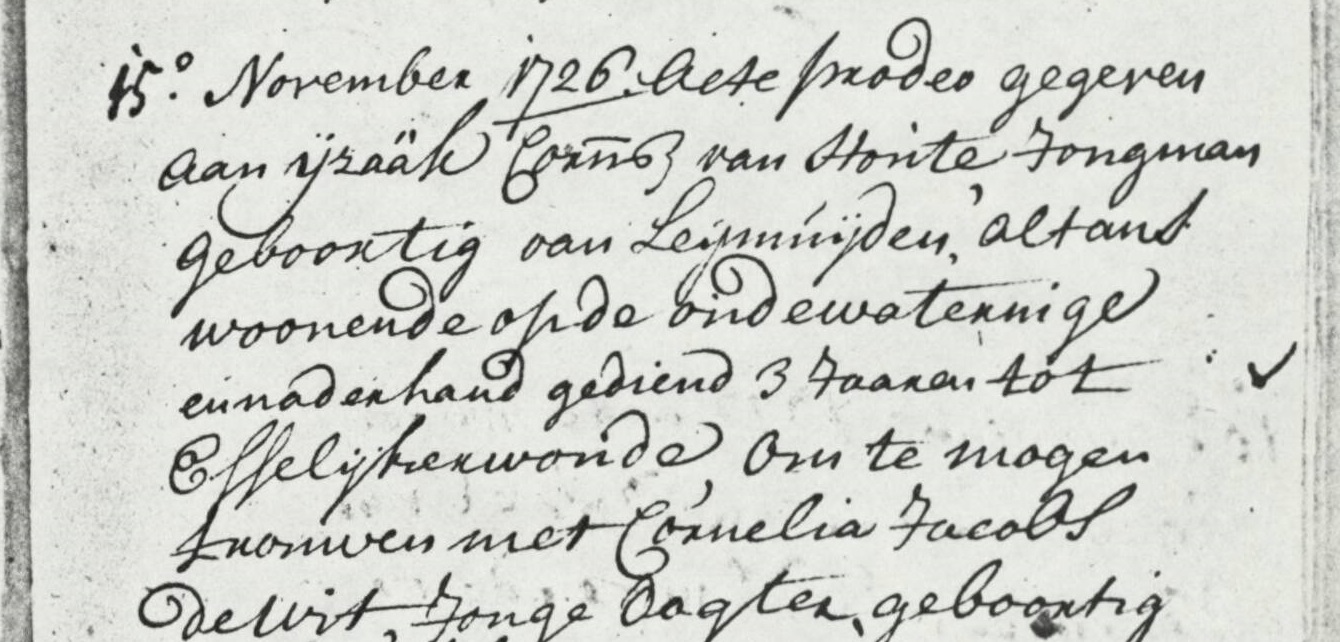 15.º November 1726. Acte prodeo gegeven
aan ijzaäk Cornsz van Houte Jongman
geboortig van Leijmúijden, altans
woonende op de oúdewaterinige
en naderhand gediend 3 Jaaren tot
Esselijkerwoúde, om te mogen
trouwen met Cornelia Jacobs
de Wit, Jonge Dogter, geboortig